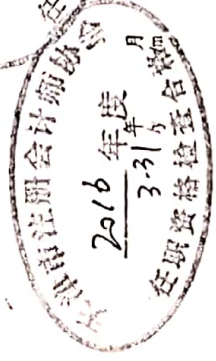 天津市注册会计师协会
2016 年度
3.31
任职资格检查合格